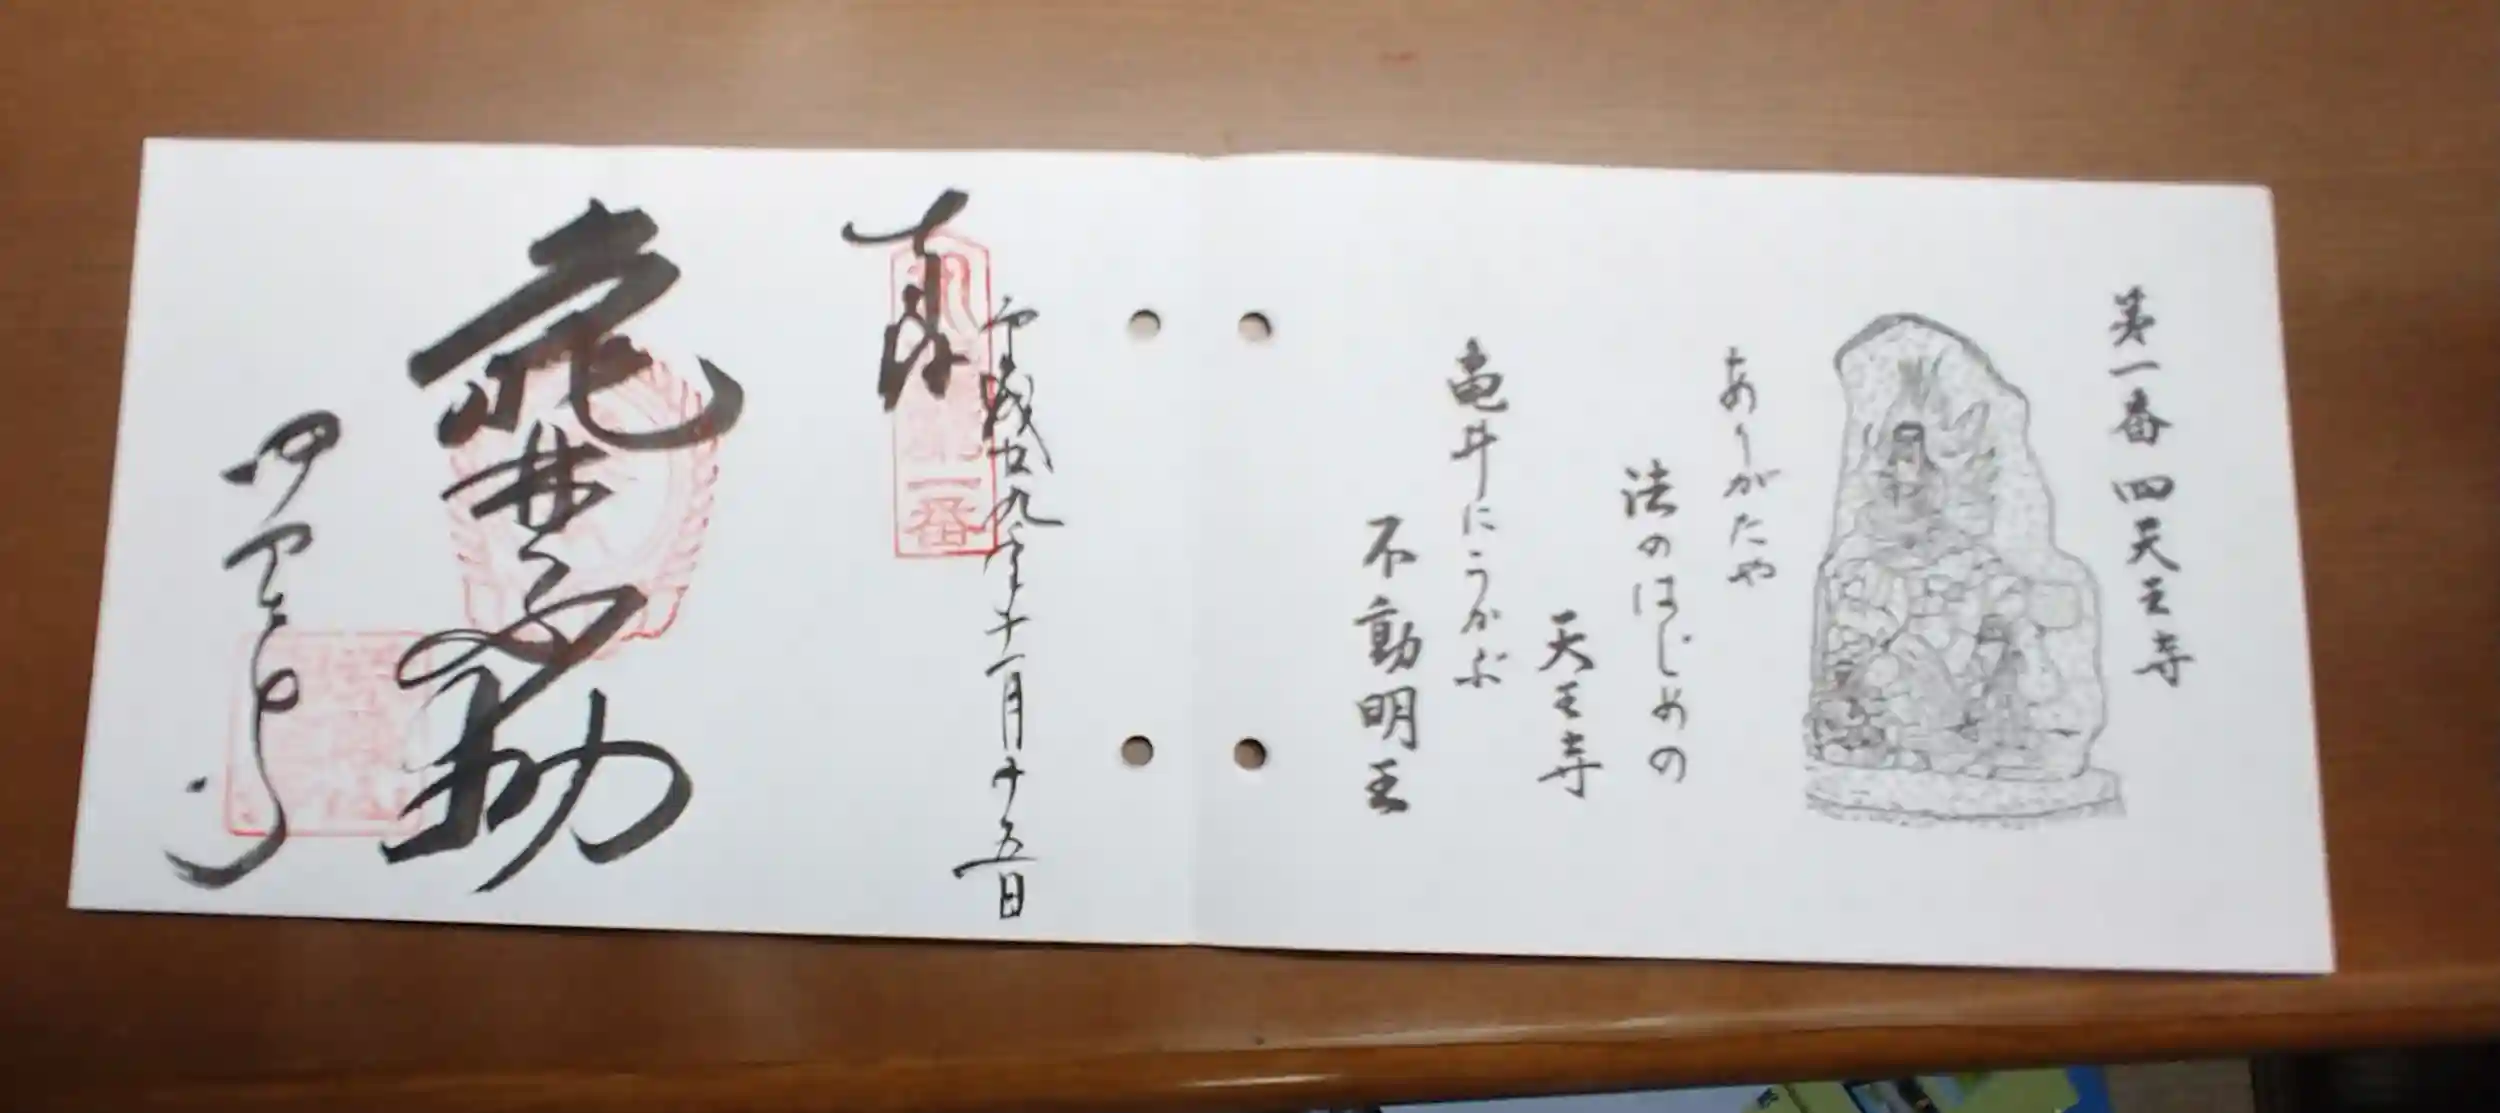 第一番 四天王寺
ありがたや
法のはじめの
天王寺
亀井にうかぶ
不動明王
平成廿九年十一月十五日
奉拝
第一番
亀井不動
四天王寺